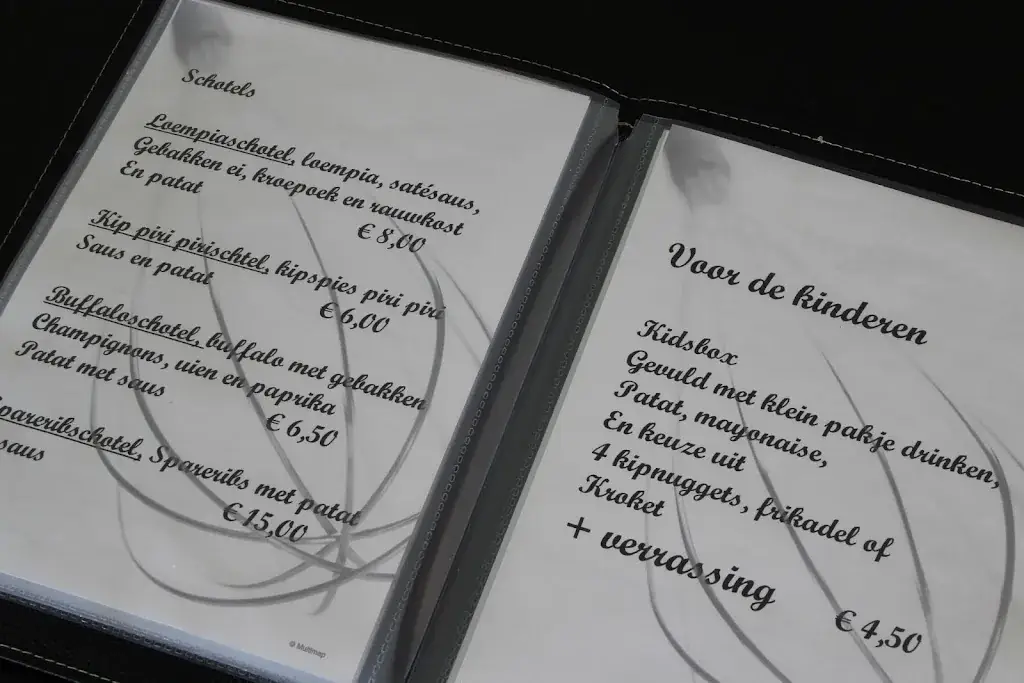 Schotels
Loempiaschotel, loempia, satésaus,
Gebakken ei, kroepoek en rauwkost
En patat
€ 8,00
Kip piri pirischtel, kipspies piri piri
Saus en patat
€ 6,00
Buffaloschotel, buffalo met gebakken
Champignons, uien en paprika
Patat met saus
€ 6,50
Spareribschotel, Spareribs met patat
saus
€ 15,00
© Multimap
Voor de kinderen
Kidsbox
Gevuld met klein pakje drinken,
Patat, mayonaise,
En keuze uit
4 kipnuggets, frikadel of
Kroket
+ verrassing
€ 4,50